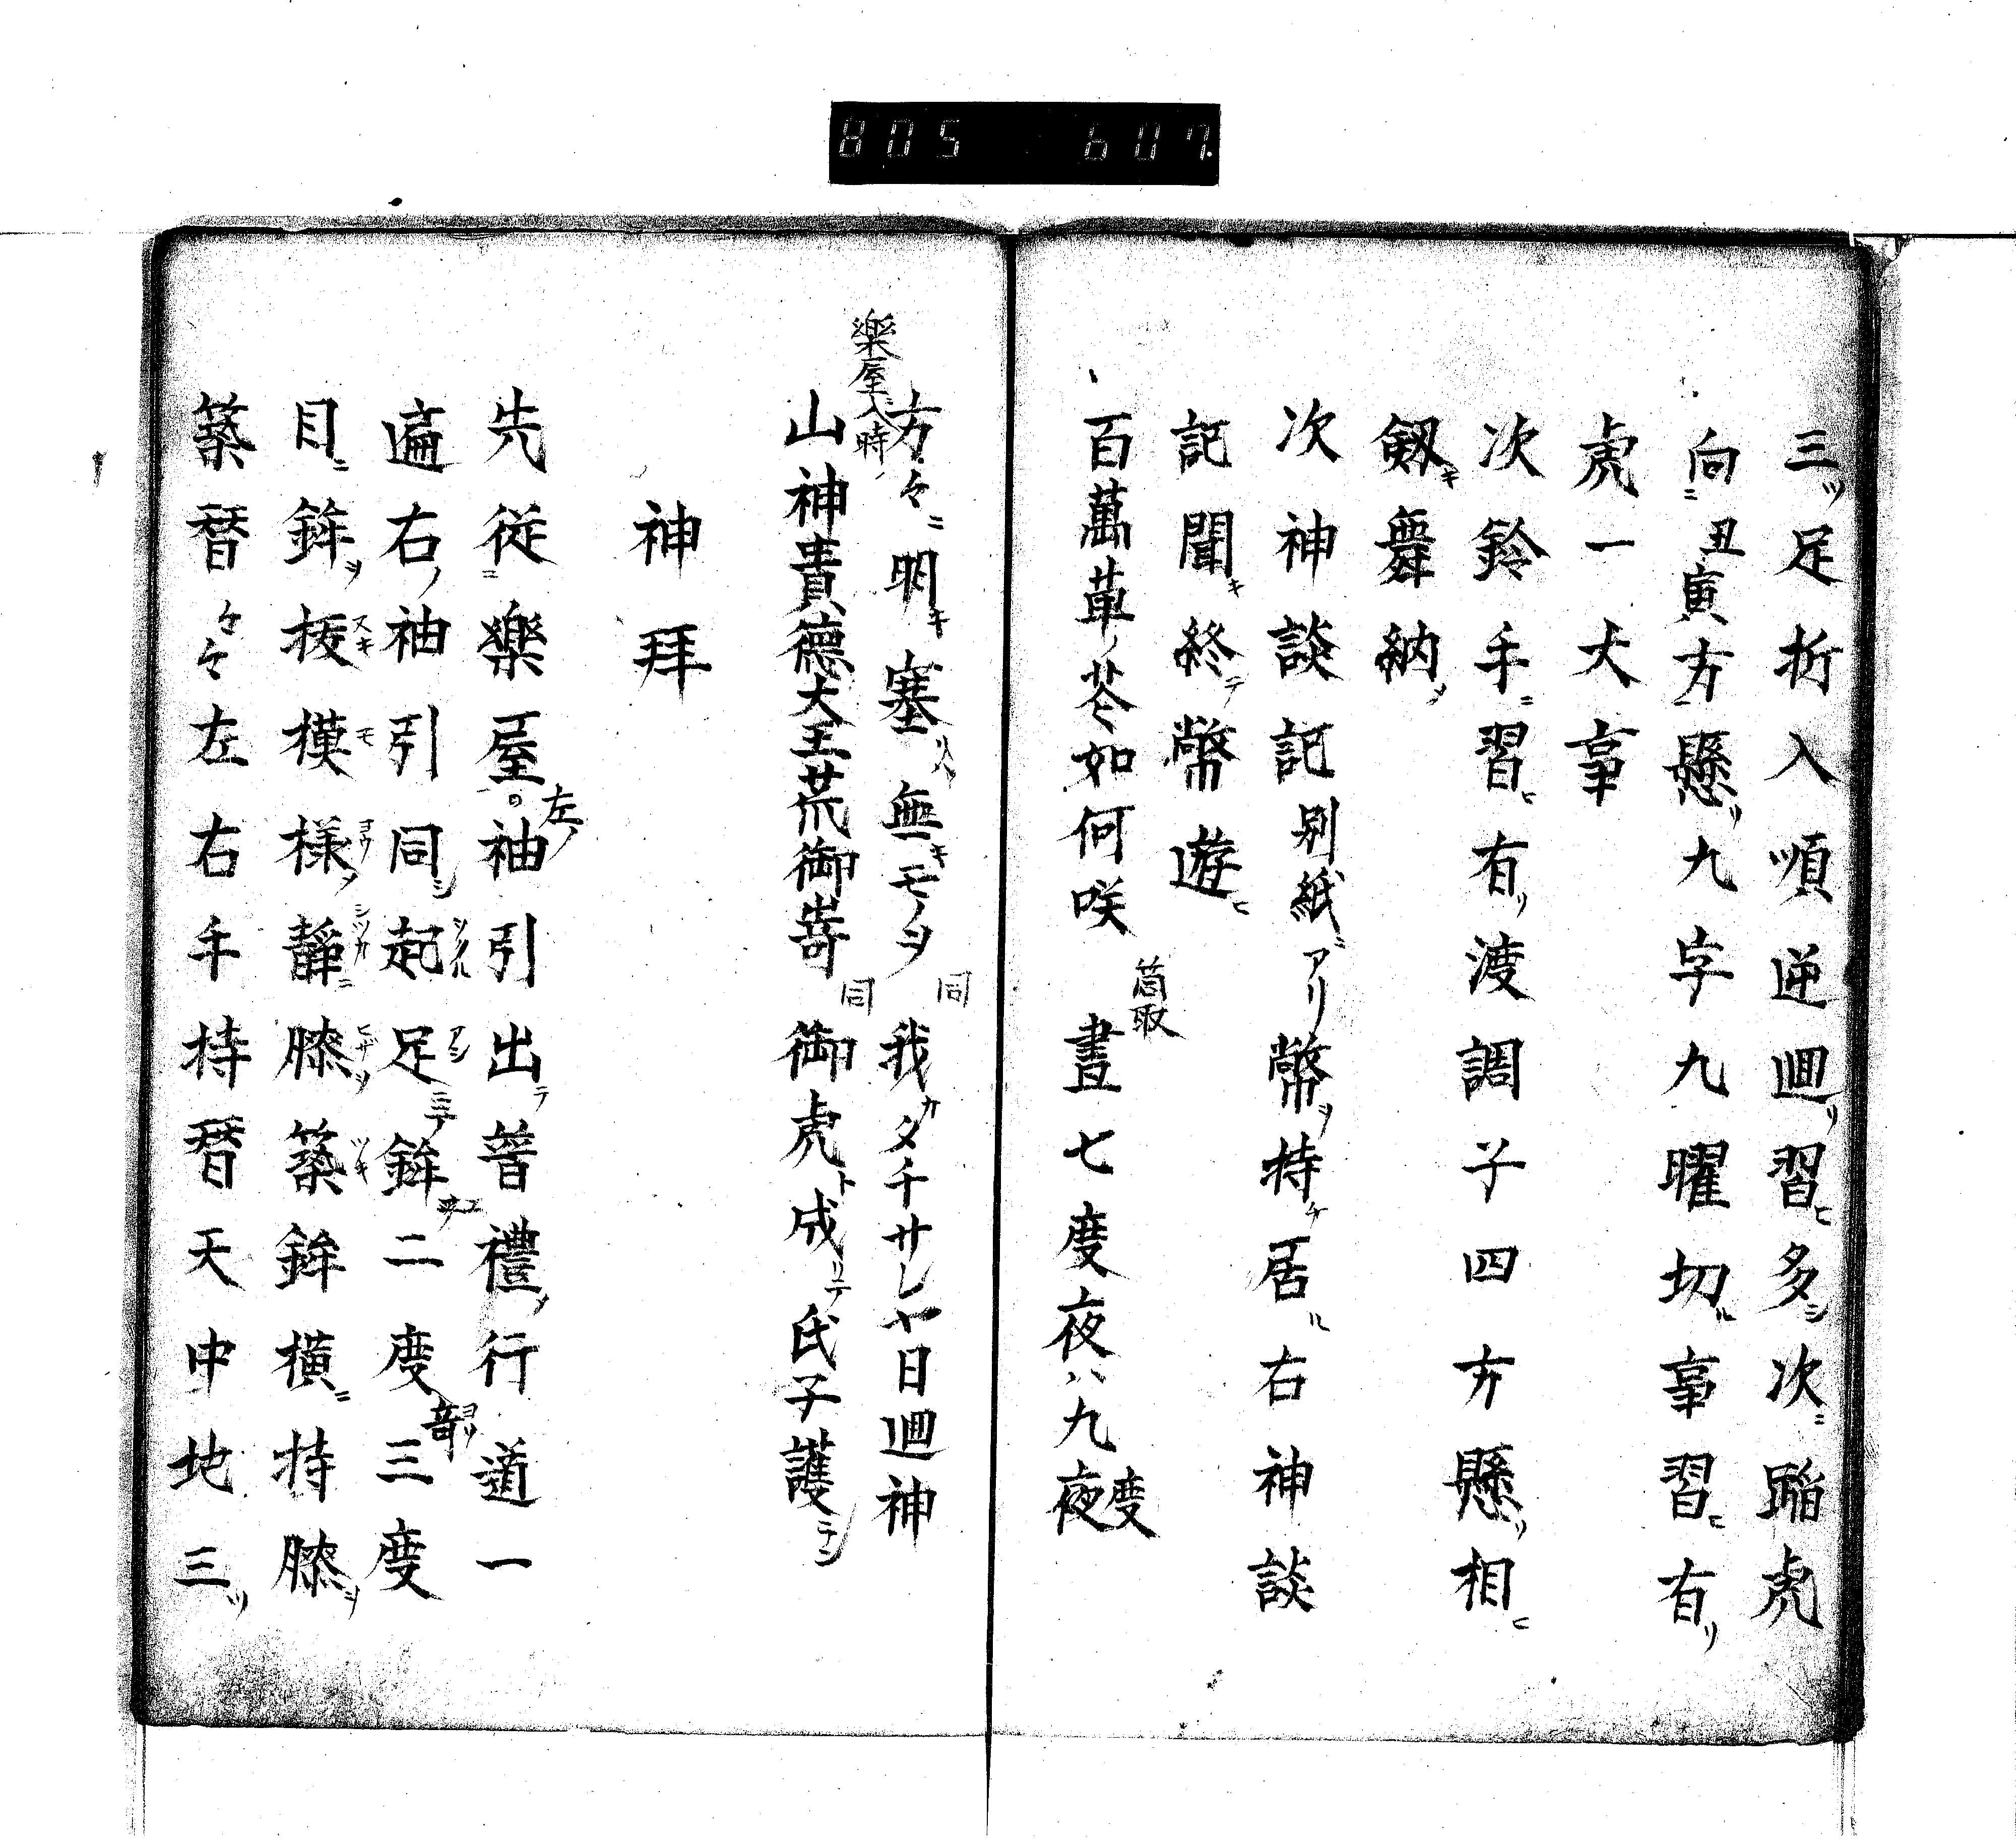 805 607.
三ツ足折入順逆廻リ習ヒ多シ次ニ踏虎
向ニ丑寅方懸リ九字九曜切ル事習ヒ有リ
虎一大事
次鈴手ニ習ヒ有リ渡調子四方懸リ相ヒ
剱キ舞納ノ
次神談記別紙アリ幣ヲ持チ居ル右神談
記聞キ終テ幣遊ヒ
百萬草ノ如何咲 昼七度夜ハ九夜度
方々ニ明キ塞リ無キモノヲ 同 我カタチサレヤ日廻神
楽屋入時ノ
山神責徳大王荒御嵜 同 御虎ト成リテ氏子護ラシ
神拜
先従ニ樂屋ノ左ノ袖引出テ普禮ノ行道一
遍右ノ袖引同シ起足鉾二度三度
目ニ鉾ヲ抜スキ模モ様ヨウノ静シツカニ膝ヒサヲ築ツキ鉾横ニ持膝ヲ
築替々々左右手持替天中地三ツ